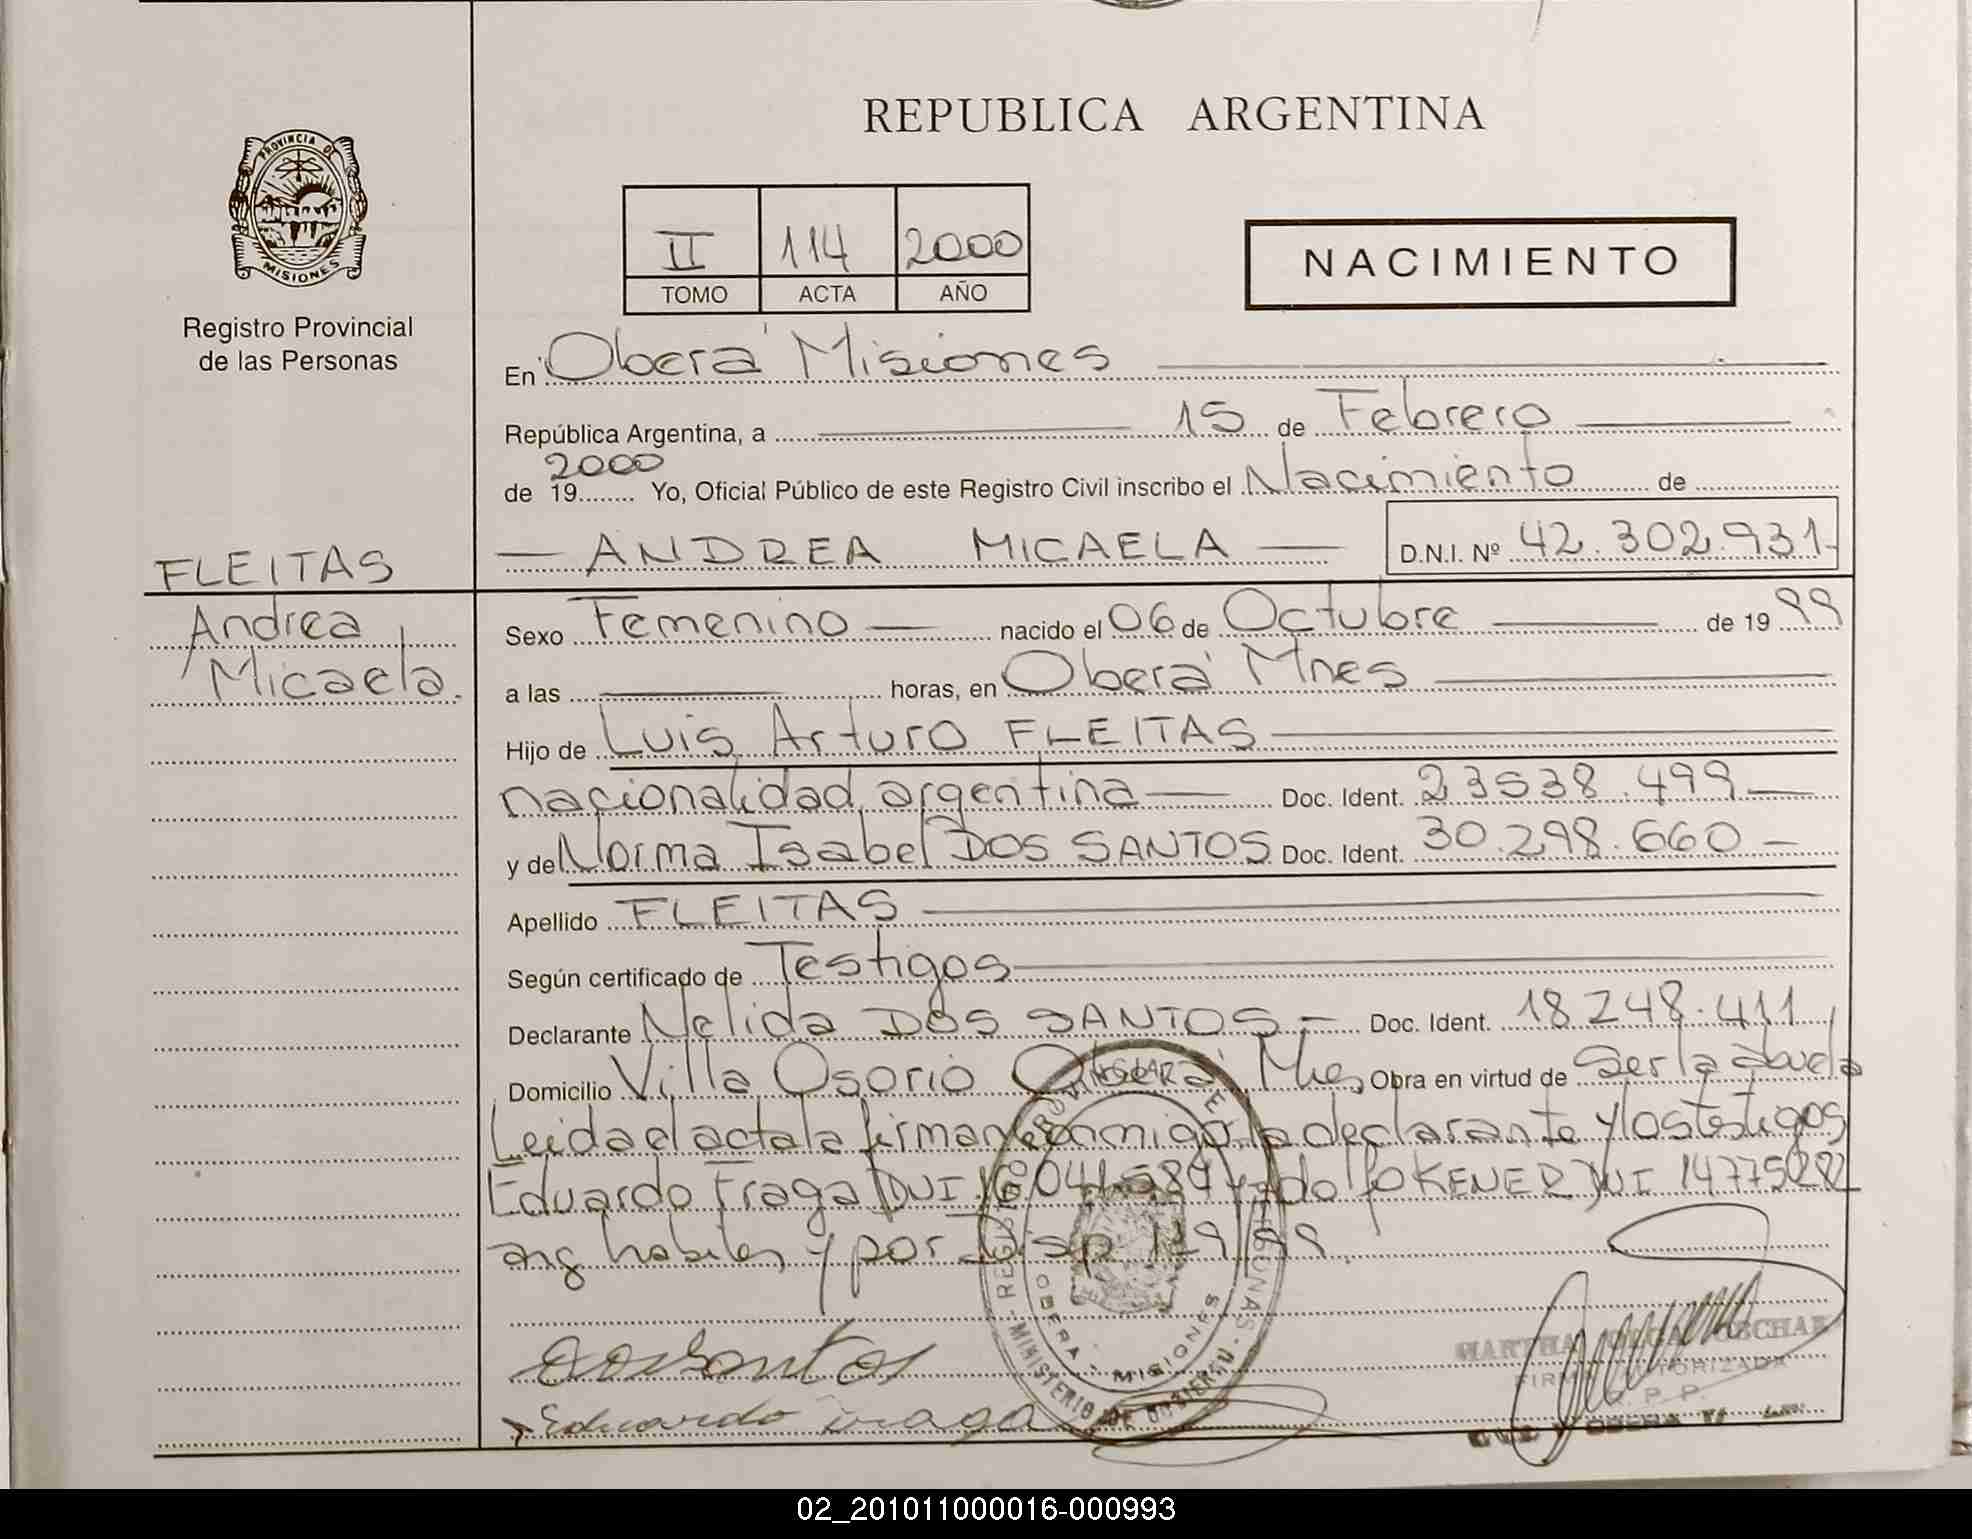 REPUBLICA ARGENTINA
PROVINCIA DE
MISIONES
Registro Provincial
de las Personas
II 114 2000
TOMO ACTA AÑO
NACIMIENTO
En Oberá Misiones
República Argentina, a 15 de Febrero
2000
de 19........ Yo, Oficial Público de este Registro Civil inscribo el Nacimiento de
ANDREA MICAELA D.N.I. Nº 42.302.931
FLEITAS
Andrea
Micaela.
Sexo Femenino nacido el 06 de Octubre de 19 99
a las horas, en Oberá Mnes
Hijo de Luis Arturo FLEITAS
nacionalidad argentina Doc. Ident. 23538.499
y de Norma Isabel DOS SANTOS Doc. Ident. 30.298.660
Apellido FLEITAS
Según certificado de Testigos
Declarante Nelida DOS SANTOS Doc. Ident. 18248.411
Domicilio Villa Osorio Oberá Mnes Obra en virtud de Ser la abuela
Leida el acta la firman conmigo la declarante y los testigos
Eduardo Fraga DNI 16041584 y Adolfo KENER DNI
arg habiles y por Disp 119/99
Dos Santos
Eduardo Fraga
OBERA - MISIONES
MINISTERIO DE GOBIERNO
MARTHA OLGA
FIRMA AUTORIZADA
02_201011000016-000993